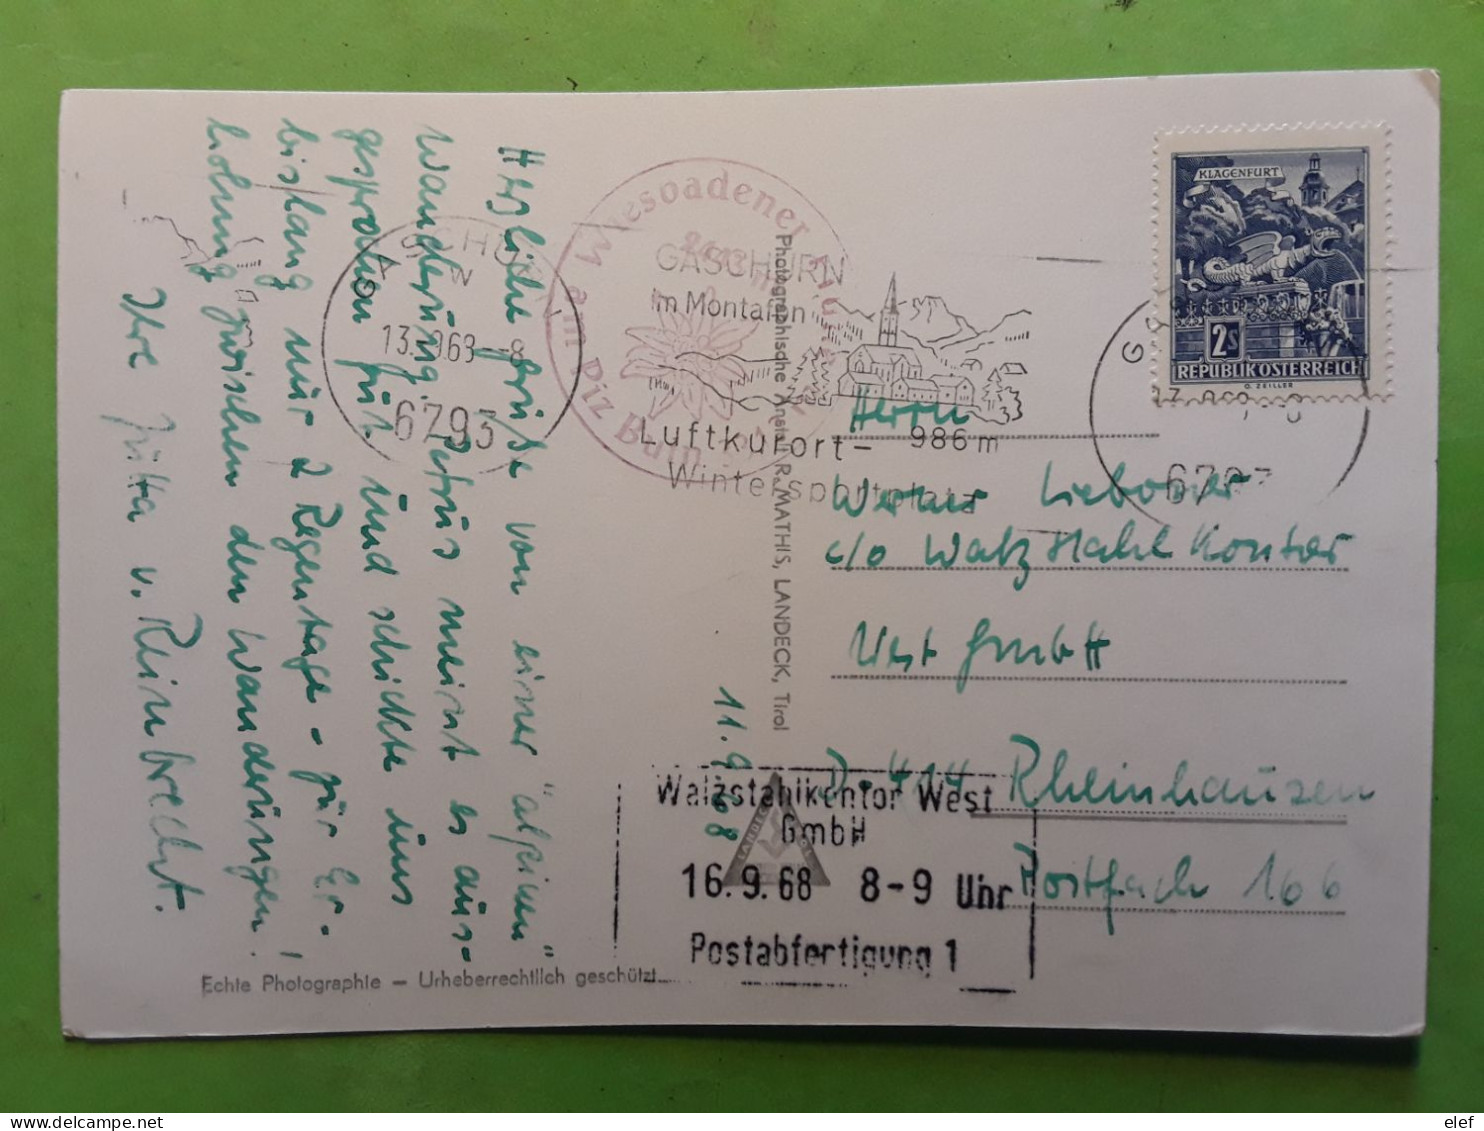 Herzliche Grüße von einer "alpinen"
Wanderung. Petrus meint es aus-
gesprochen gut und schickte uns
bislang nur 2 Regentage - zur Er-
holung zwischen den Wanderungen!
Ihre Jutta v. Reinbrecht.
11.9.68
13. 9.68 - 8
6793
Wiesbadener Hütte
am Piz Buin
GASCHURN
im Montafon
986m
Luftkurort -
Wintersportplatz
Photographische Anstalt R. MATHIS, LANDECK, Tirol
KLAGENFURT
2S
REPUBLIK ÖSTERREICH
O. ZEILLER
6793
Herrn
Werner
c/o Walzstahlkontor
West GmbH
D-414 Rheinhausen
Postfach 166
Walzstahlkontor West
GmbH
16.9.68 8-9 Uhr
Postabfertigung 1
LANDECK
Echte Photographie – Urheberrechtlich geschützt
elef